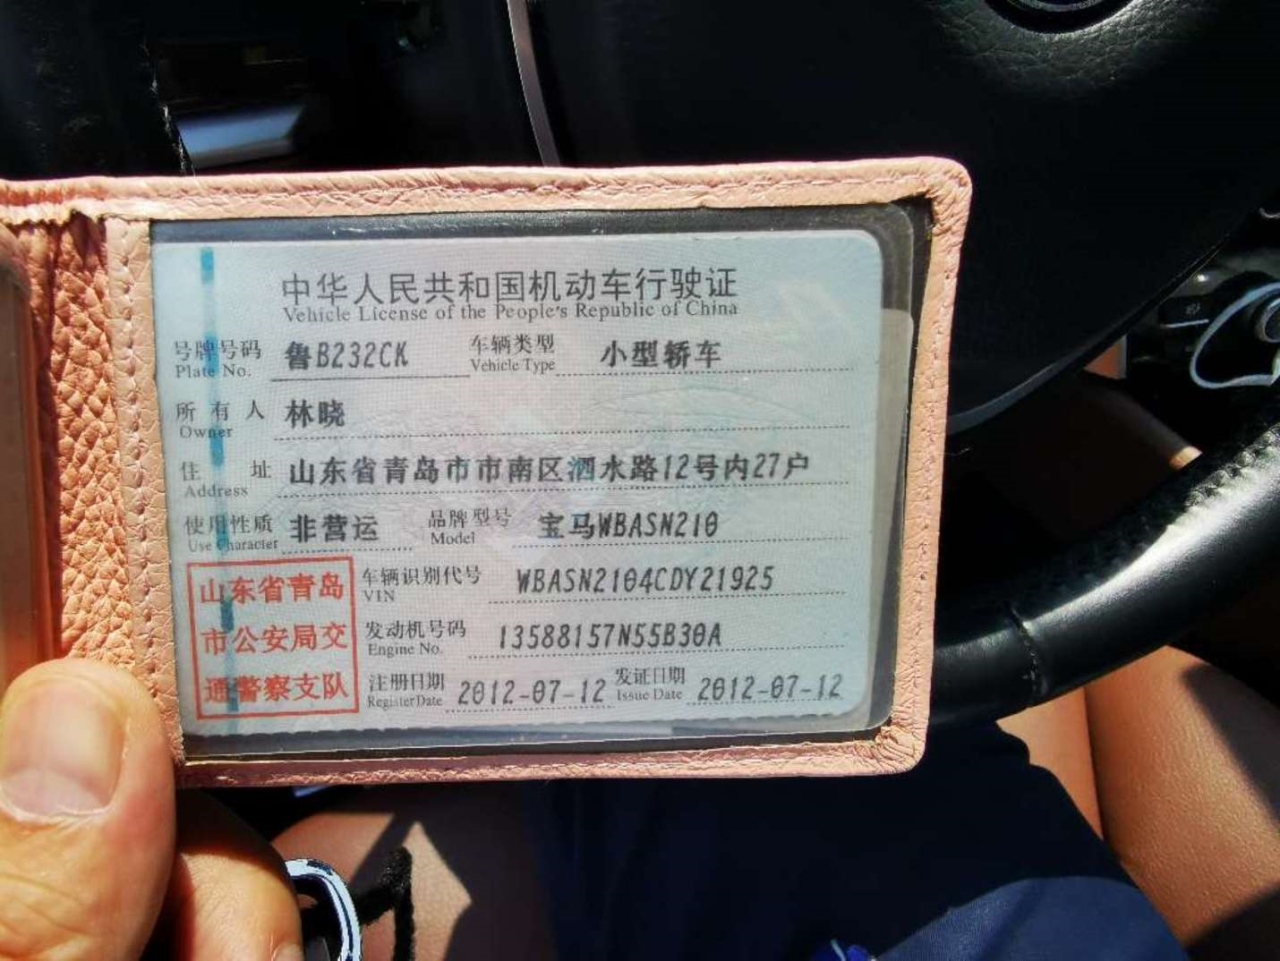 中华人民共和国机动车行驶证
Vehicle License of the People's Republic of China
号牌号码 鲁B232CK 车辆类型 小型轿车
Plate No. Vehicle Type
所有人 林晓
Owner
住址 山东省青岛市市南区泗水路12号内27户
Address
使用性质 非营运 品牌型号 宝马WBASN210
Use Character Model
山东省青岛
市公安局交
通警察支队
车辆识别代号 WBASN2104CDY21925
VIN
发动机号码 13588157N55B30A
Engine No.
注册日期 2012-07-12 发证日期 2012-07-12
Register Date Issue Date